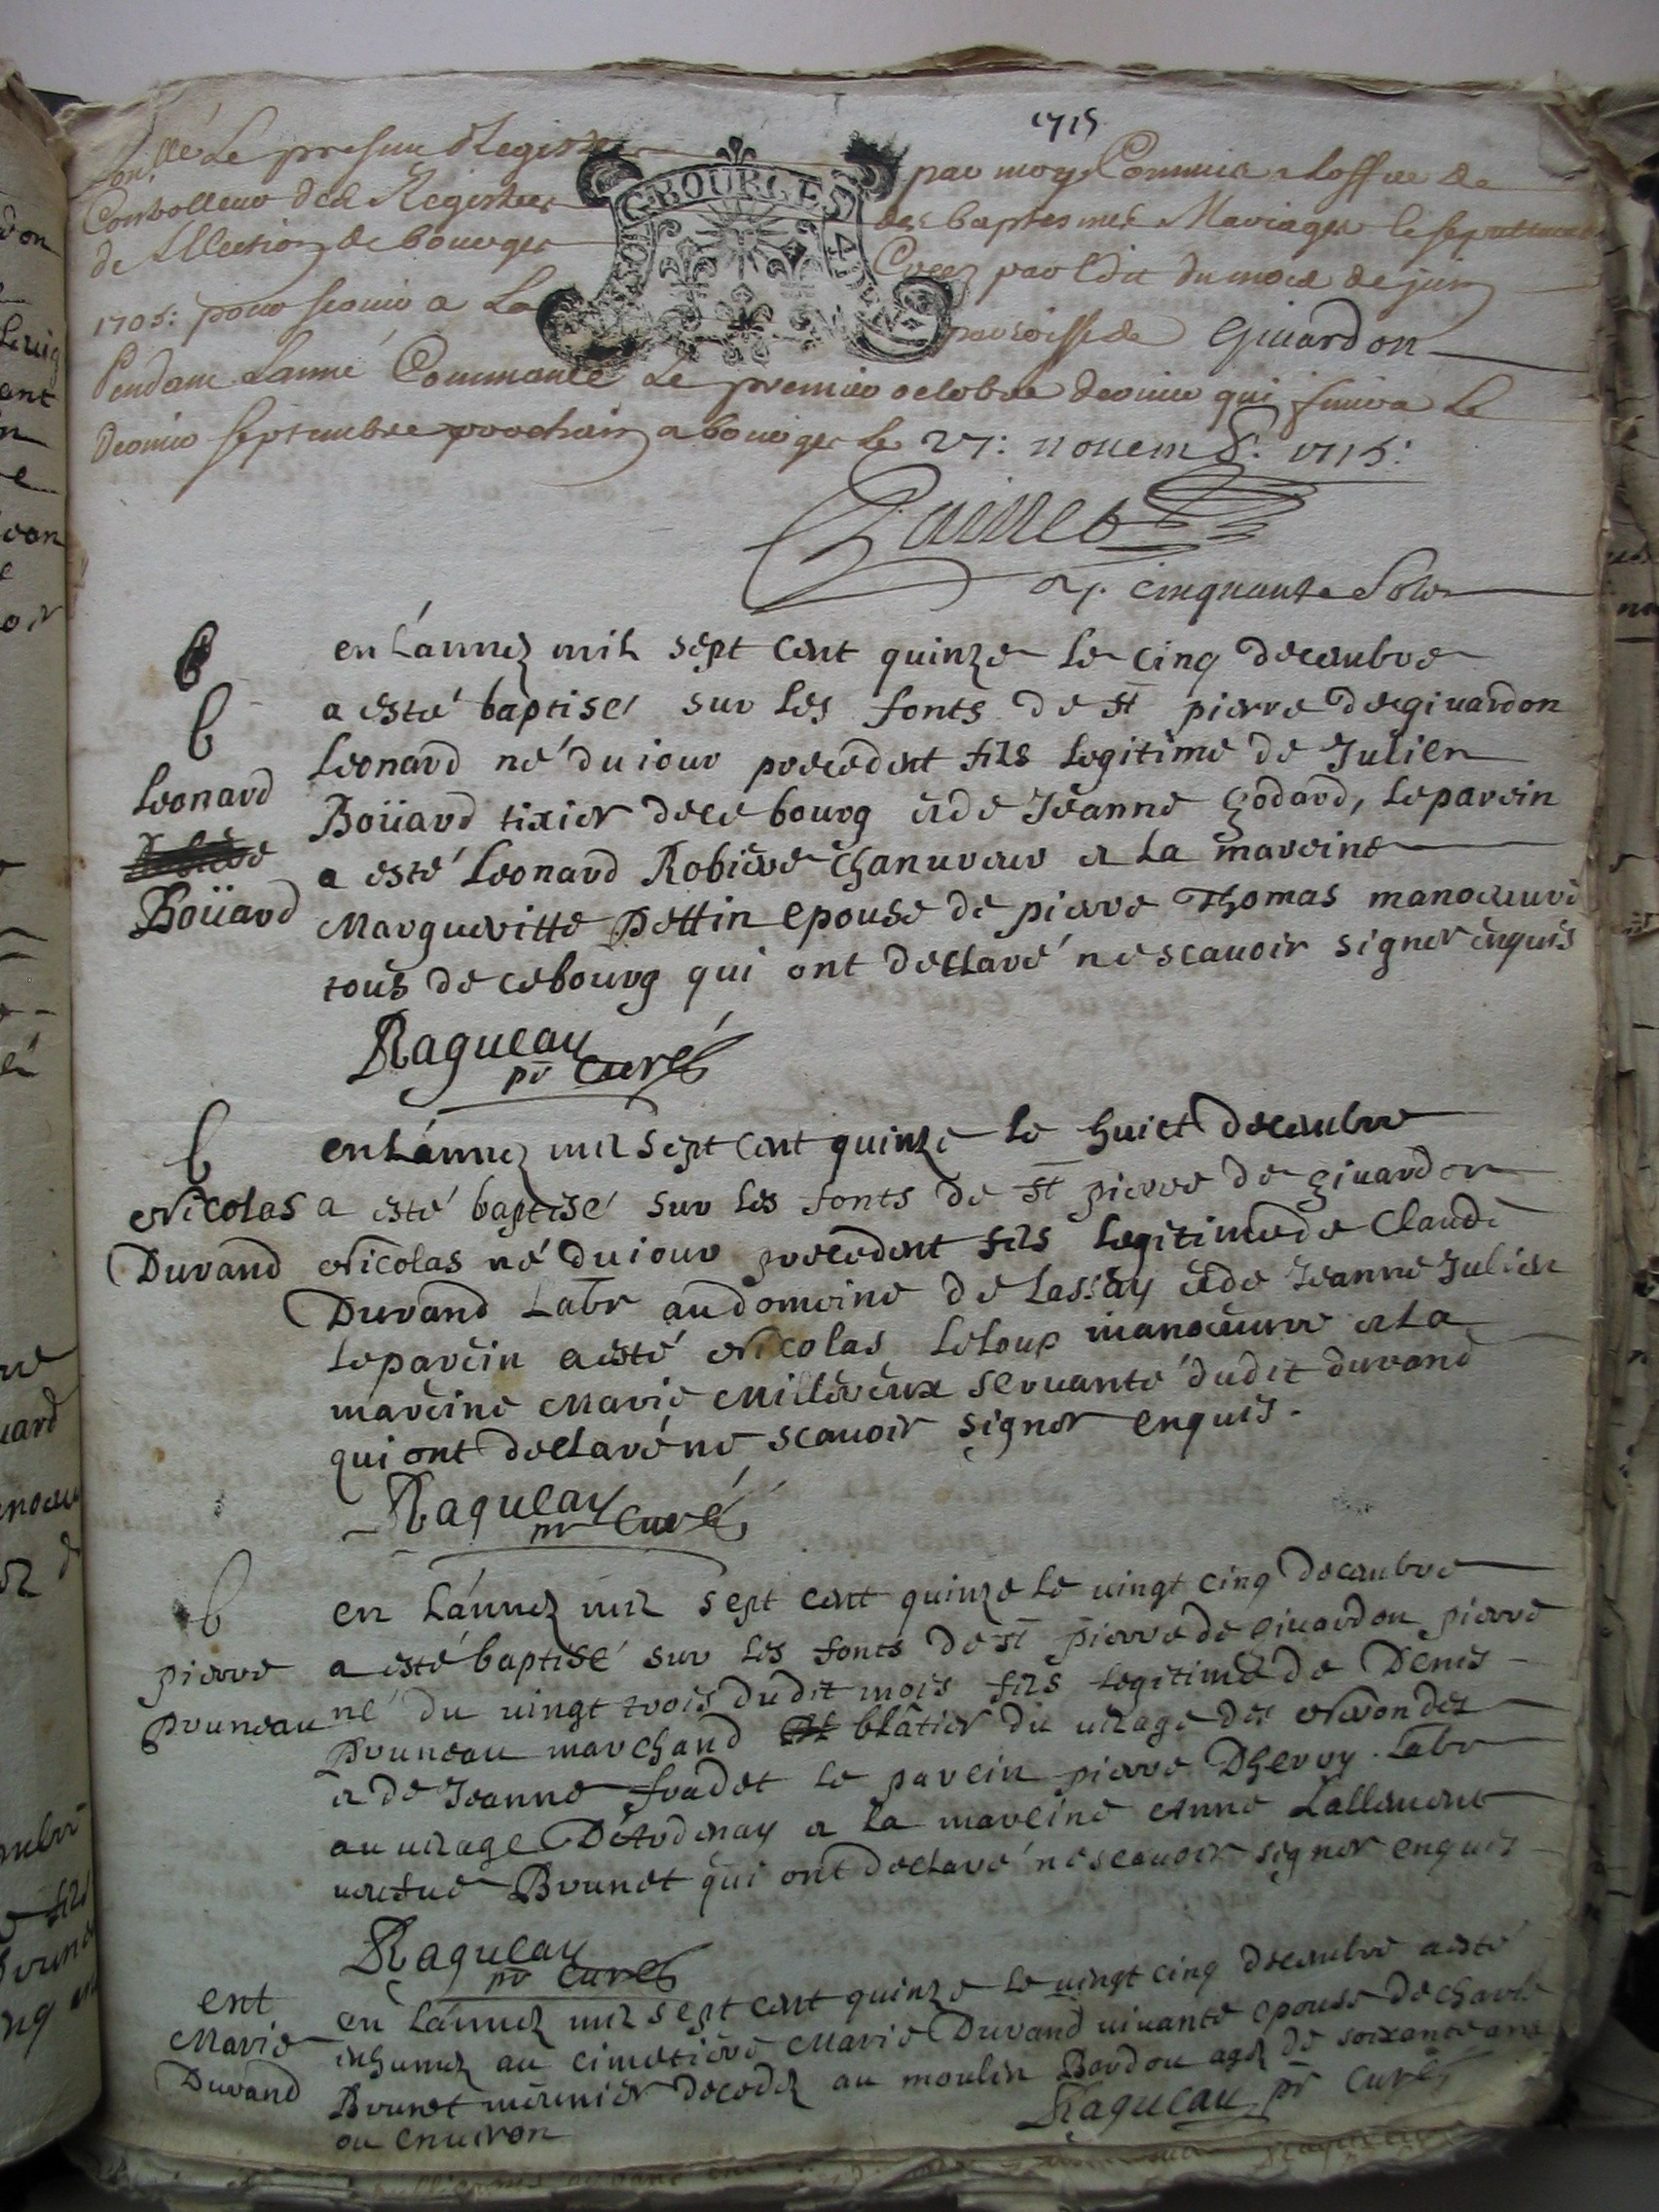 1715
le present Registre par moy Commis a loffice de
Controlleur des Registres des baptesmes Mariages & sepultures
de Lellection de bourges Creez par Edit du mois de juin
1705: pour servir a La parroisse de Givardon
Pendant Lanné Commancée Le premier octobre dernier qui finira Le
dernier septembre prochain a bourges Le 27: novem8: 1715:
BOURGES
cinquante Sols
b
en Lánnez mil sept cent quinze le cinq decembre
b
a esté baptisé sur les fonts de st pierre degivardon
Leonard
Leonard né du iour precedent fils Legitime de Julien
Boüard tixier dece bourg et de Jéanne Godard, le parein
a esté Leonard Robiere chanvreur et la mareine
Boüard
Margueritte Pettin epouse de pierre Thomas manoeuvre
tous de cebourg qui ont declaré ne scavoir signer enquis
Ragueau
pr curé
b
en Lánnez mil sept cent quinze le huict decembre
Nicolas
a esté baptisé sur les fonts de st pierre de givardon
Durand
Nicolas né du iour precedent fils Legitime de Claude
Durand Labr au domeine de Lassay et de Jeanne Julien
le parein a esté Nicolas Leloup manoeuvre et la
mareine Marie Millereux servante dudit durand
qui ont declaré ne scavoir signer enquis.
Ragueau
pr curé
b
en Lánnez mil sept cent quinze le vingt cinq decembre
pierre
a esté baptisé sur les fonts de st pierre de givardon pierre
pruneau
né du vingt trois dudit mois fils Legitime de Denis
Pruneau marchand blâtier du vilage des Nerondes
et de Jeanne fradet le parein pierre Dhervy Labr
au vilage D'Ardenay et la mareine Anne Lallemant
veufue Brunet qui ont declaré ne scavoir signer enquis
Ragueau
pr curé
ent
en Lánnez mil sept cent quinze le vingt cinq decembre a esté
Marie
inhumez au cimetiere Marie Durand vivante epouse de charle
Durand
Brunet meunier decedez au moulin Bardou agez de soixante ans
ou environ
Ragueau pr curé